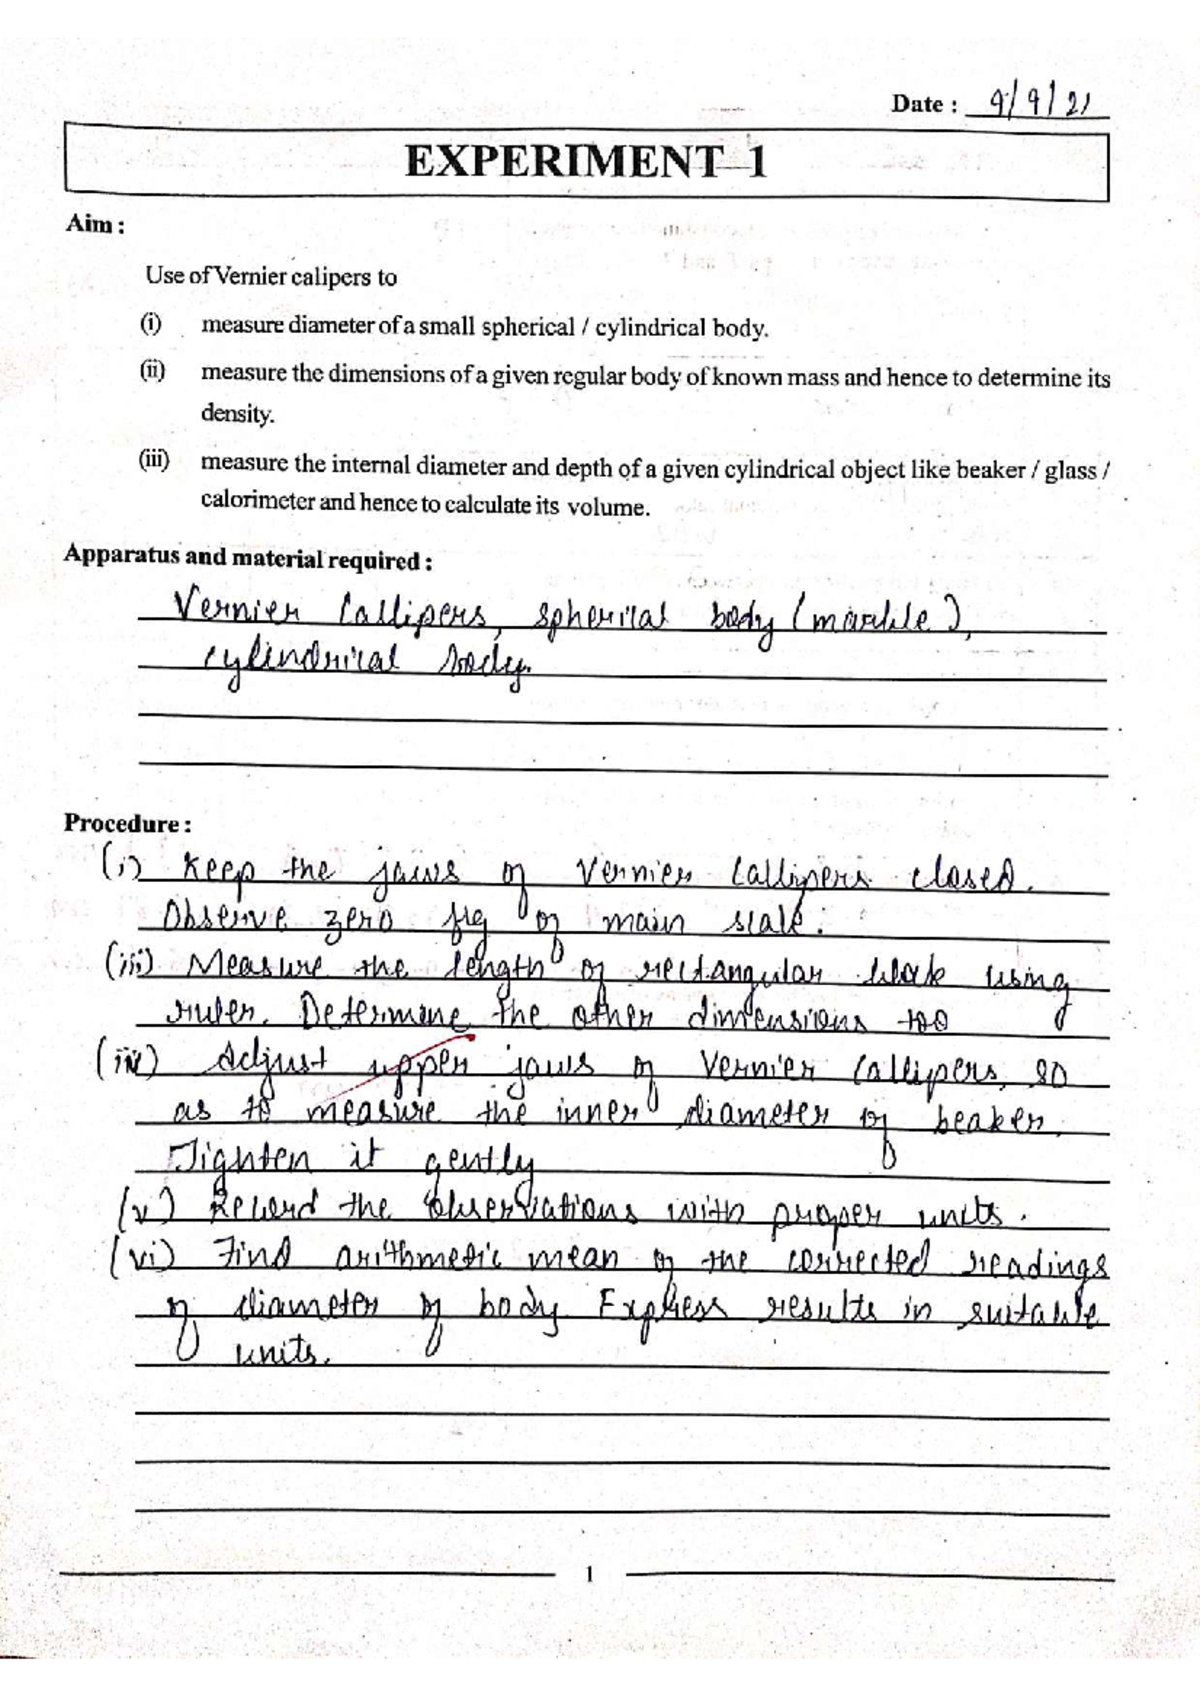 Date : 9/9/21
EXPERIMENT 1
Aim :
Use of Vernier calipers to
(i) measure diameter of a small spherical / cylindrical body.
(ii) measure the dimensions of a given regular body of known mass and hence to determine its
density.
(iii) measure the internal diameter and depth of a given cylindrical object like beaker / glass /
calorimeter and hence to calculate its volume.
Apparatus and material required :
Vernier Callipers, spherical body (marble),
cylindrical body.
Procedure :
(i) Keep the jaws of Vernier Callipers closed.
Observe zero fig of main scale.
(iii) Measure the length of rectangular block using
ruler. Determine the other dimensions too
(iv) Adjust upper jaws of Vernier Callipers, so
as to measure the inner diameter of beaker.
Tighten it gently
(v) Record the observations with proper units.
(vi) Find arithmetic mean of the corrected readings
of diameter of body. Express results in suitable
units.
1